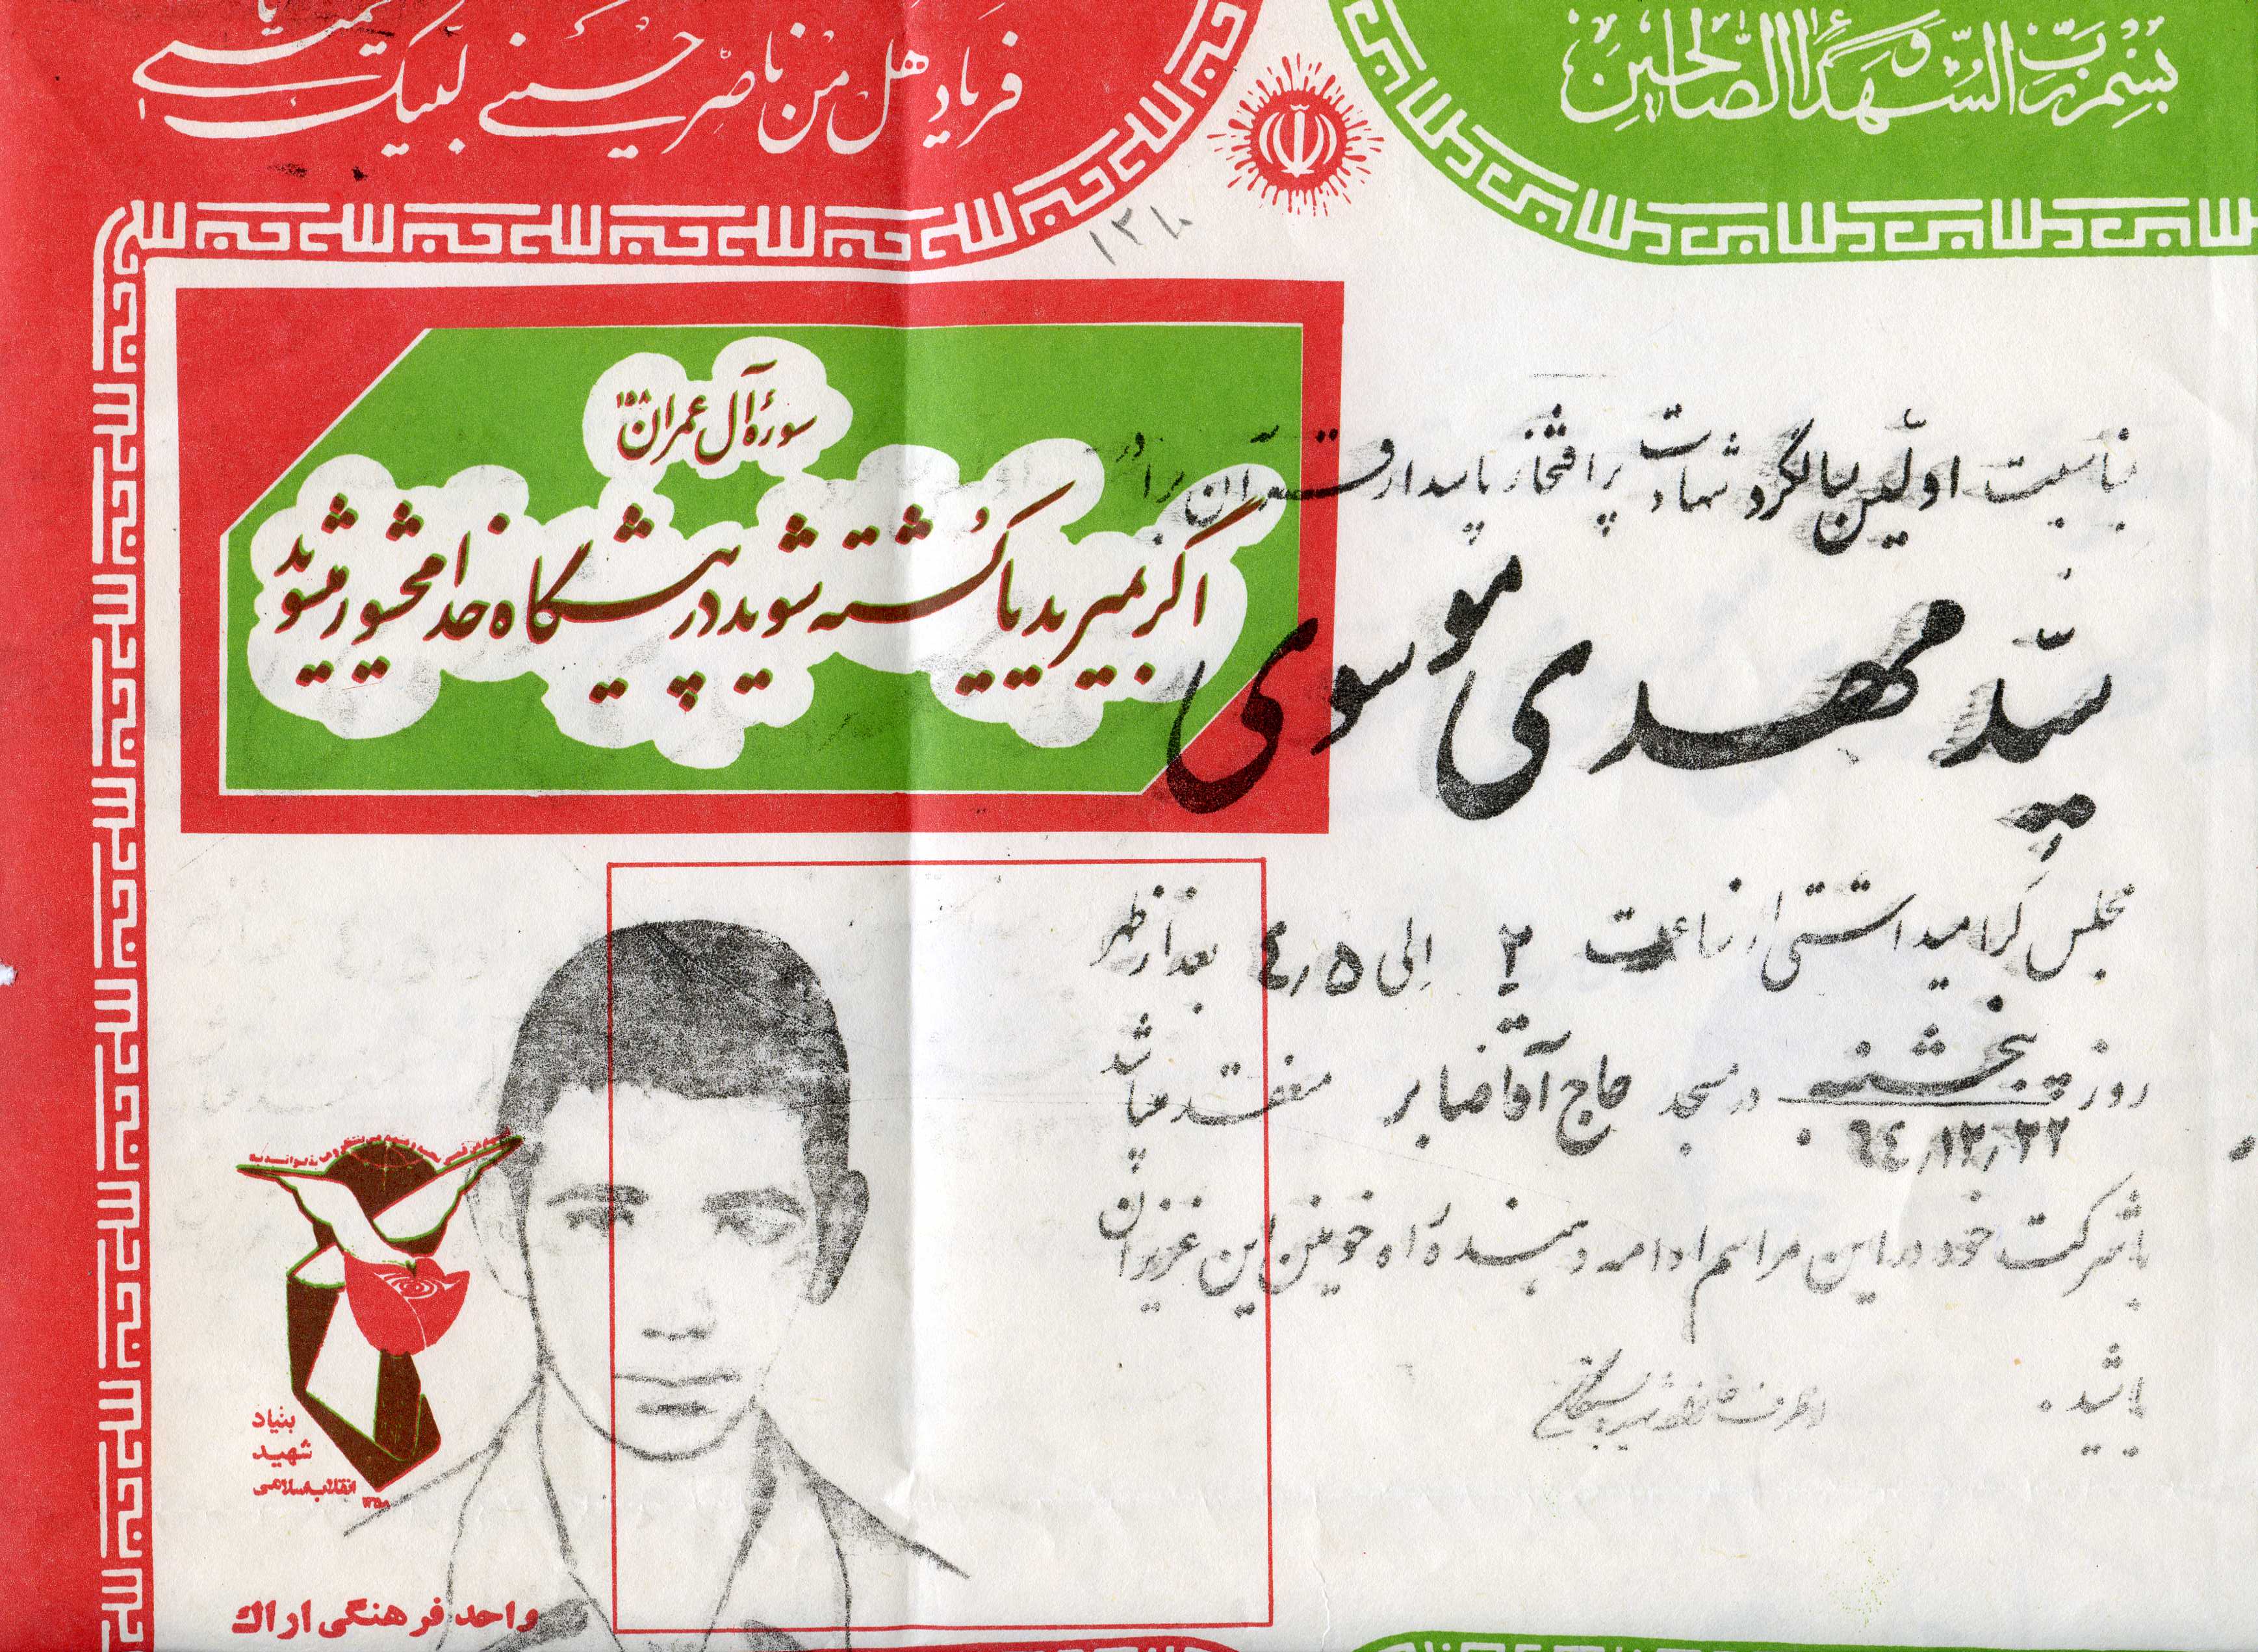 بسم رب الشهدا و الصالحین
فریاد هل من ناصر حسینی لبیک خمینی
۱۳۸۰
سورهٔ آل عمران ۱۵۸
اگر بمیرید یا کشته شوید در پیشگاه خدا محشور میشوید
بمناسبت اولین سالگرد شهادت پر افتخار پاسدار قرآن برادر
سید مهدی موسوی
مجلس گرامیداشتی از ساعت ۲ الی ۴٫۵ بعد از ظهر
روز پنجشنبه در مسجد حاج آقا صابر منعقد میباشد
۶۴٫۱۲٫۲۲
با شرکت خود در این مراسم ادامه دهنده راه خونین این عزیزان
باشید.
از طرف خانواده شهید
بنیاد
شهید
انقلاب اسلامی
۱۳۵۸
واحد فرهنگی اراک